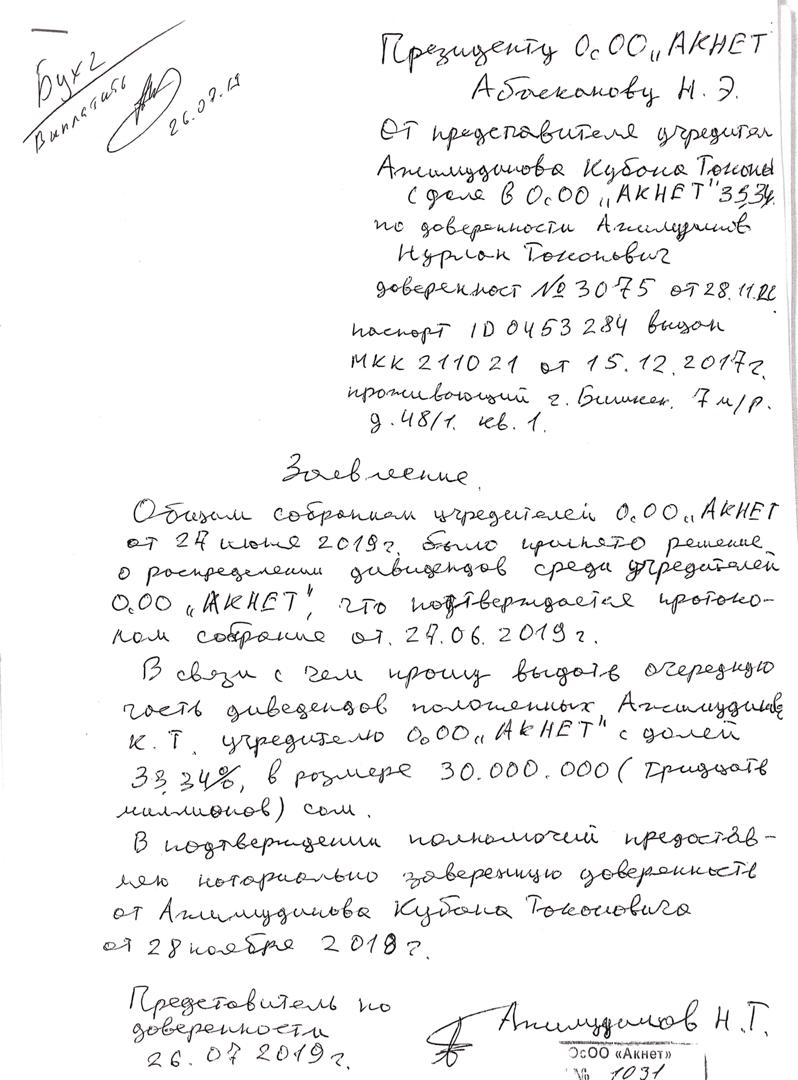 Бухг
Выплатить
26.07.19
Президенту ОсОО „АКНЕТ
Абасканову Н. Э.
От представителя учредителя
Ажимудинова Кубана Токоны
с доля в ОсОО „АКНЕТ" 33,34%
по доверенности Ажимудинов
Нурлан Токонович
доверенност № 3075 от 28.11.
паспорт ID 0453284 выдан
МКК 211021 от 15.12.2017г.
проживающий г. Бишкек. 7 м/р.
д.48/1. кв.1.
Заявление
Общим собранием учредителей ОсОО „АКНЕТ
от 27 июня 2019г. было принято решение
о распределении дивидендов среди учредителей
ОсОО „АКНЕТ", что подтверждается протоко-
лом собрание от. 27.06.2019г.
В связи с чем прошу выдать очередную
часть диведендов положенных Ажимудинову
К.Т. учредителю ОсОО „АКНЕТ" с долей
33,34%, в розмере 30.000.000 (Тридцать
миллионов) сом.
В подтверждении полномочий предостав-
ляю нотариально заверенную доверенность
от Ажимудинова Кубана Токоновича
от 28 ноября 2018г.
Представитель по
доверенности
26.07 2019г.
Ажимудинов Н.Т.
ОсОО «Акнет»
№ 1031